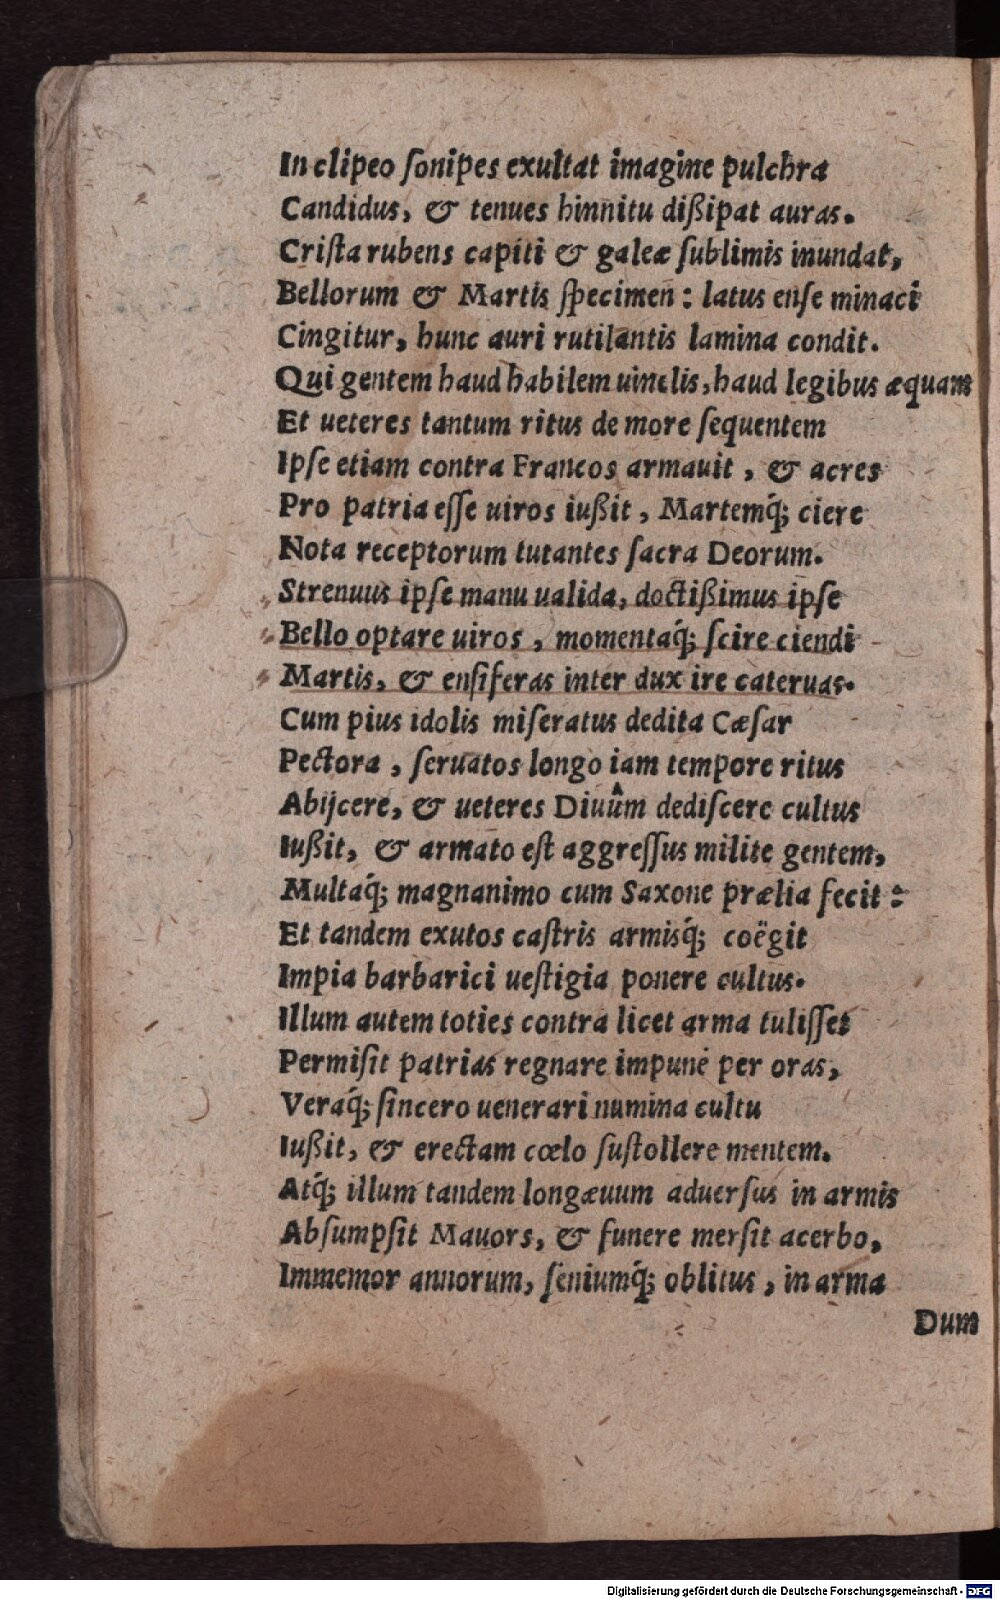 In clipeo ſonipes exultat imagine pulchra
Candidus, & tenues hinnitu dißipat auras.
Criſta rubens capiti & galeæ ſublimis inundat,
Bellorum & Martis ſpecimen: latus enſe minaci
Cingitur, hunc auri rutilantis lamina condit.
Qui gentem haud habilem uinclis, haud legibus æquam
Et ueteres tantum ritus de more ſequentem
Ipſe etiam contra Francos armauit, & acres
Pro patria eſſe uiros iußit, Martemq́; ciere
Nota receptorum tutantes ſacra Deorum.
Strenuus ipſe manu ualida, doctißimus ipſe
Bello optare uiros, momentaq́; ſcire ciendi
Martis, & enſiferas inter dux ire cateruas.
Cum pius idolis miſeratus dedita Cæſar
Pectora, ſeruatos longo iam tempore ritus
Abijcere, & ueteres Diuûm dediſcere cultus
Iußit, & armato eſt aggreſſus milite gentem,
Multaq́; magnanimo cum Saxone prælia fecit:
Et tandem exutos caſtris armisq́; coëgit
Impia barbarici ueſtigia ponere cultus.
Illum autem toties contra licet arma tuliſſet
Permiſit patrias regnare impunè per oras,
Veraq́; ſincero uenerari numina cultu
Iußit, & erectam cœlo ſuſtollere mentem.
Atq́; illum tandem longæuum aduerſus in armis
Abſumpſit Mauors, & funere merſit acerbo,
Immemor annorum, ſeniumq́; oblitus, in arma
Dum
Digitalisierung gefördert durch die Deutsche Forschungsgemeinschaft - DFG